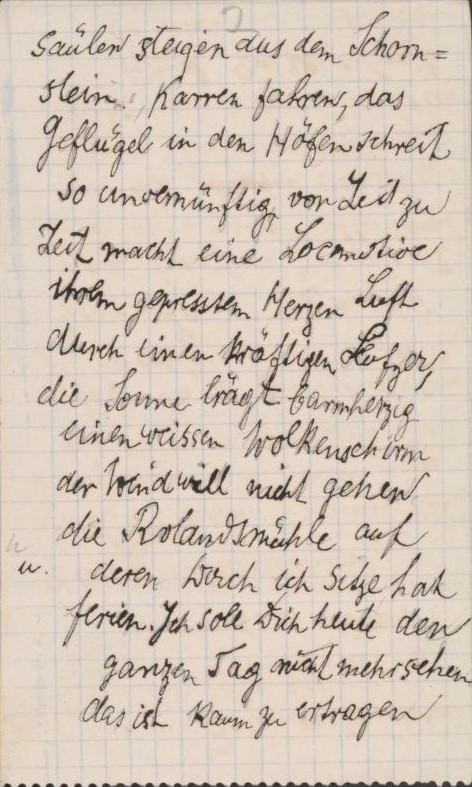 Säulen steigen aus dem Schorn=
stein. Karren fahren, das
Geflügel in den Höfen schreit
so unvernünftig, von Zeit zu
Zeit macht eine Locomotive
ihrem gepresstem Herzen Luft
durch einen kräftigen Seufzer,
die Sonne trägt barmherzig
einen weissen Wolkenschirm
der Wind will nicht gehen
die Rolandsmühle auf
u. deren Dach ich sitze hat
ferien. Ich soll Dich heute den
ganzen Tag nicht mehr sehen
das ist kaum zu ertragen